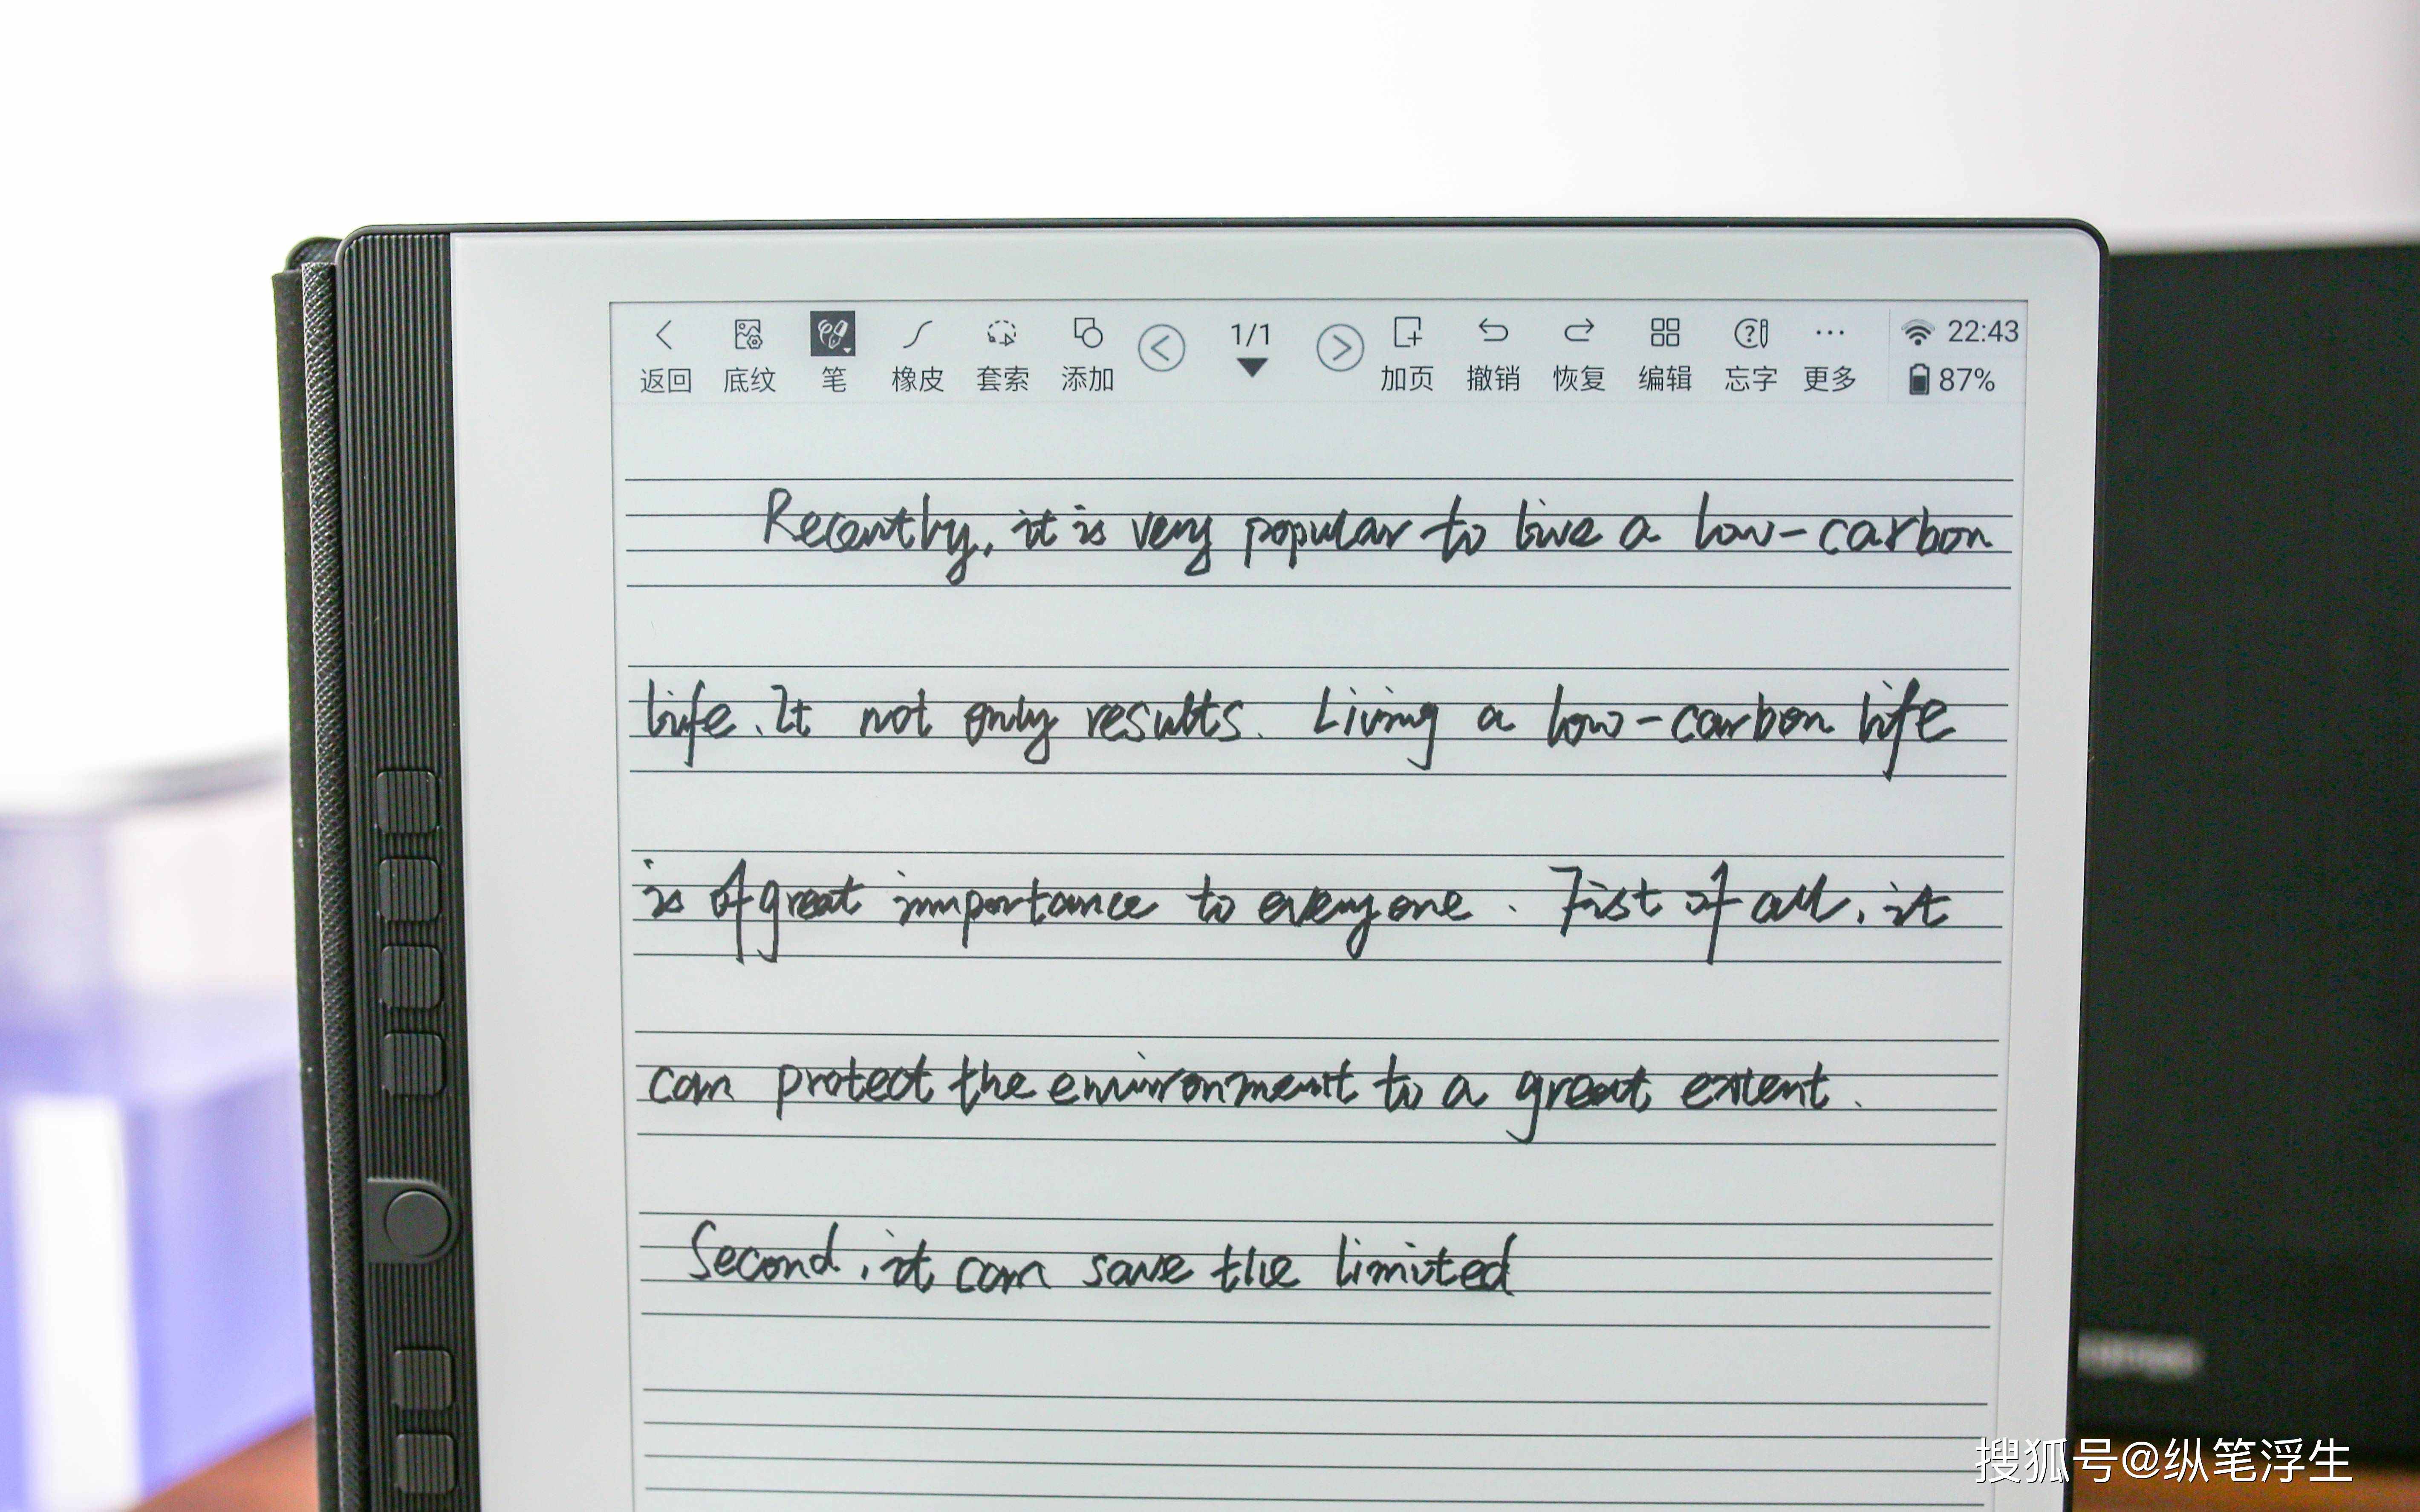 返回 底纹 笔 橡皮 套索 添加 1/1 加页 撤销 恢复 编辑 忘字 更多 22:43 87%
Recently, it is very popular to live a low-carbon
life. It not only results. Living a low-carbon life
is of great importance to everyone. Fist of all, it
can protect the environment to a great extent.
Second, it can save the limited
搜狐号@纵笔浮生